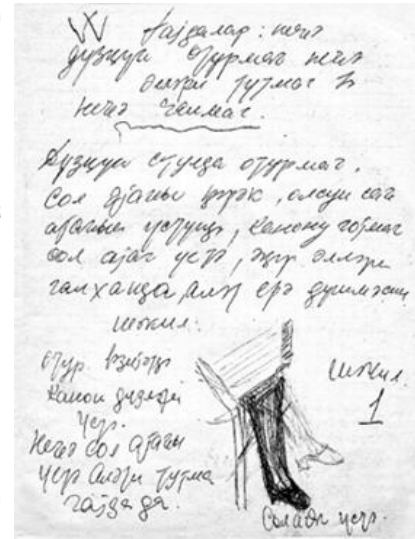 Гајдалар: нечә
дүзҝүн отурмаг нечә
әлләри тутмаг вә
нечә чалмаг.
Дүзҝүн стулда отурмаг.
Сол ајағы ҝәрәк, олсун сағ
ајағын үстүндә, канону гојмаг
сол ајаг үстә, әҝәр әлләри
галханда, аләт дүшмәсин
шәкил:
отур.
канон дизләри
үстә.
Нечә сол ајағы
үстә тутма
гајда да.
шәкил
1
Сол үстә.